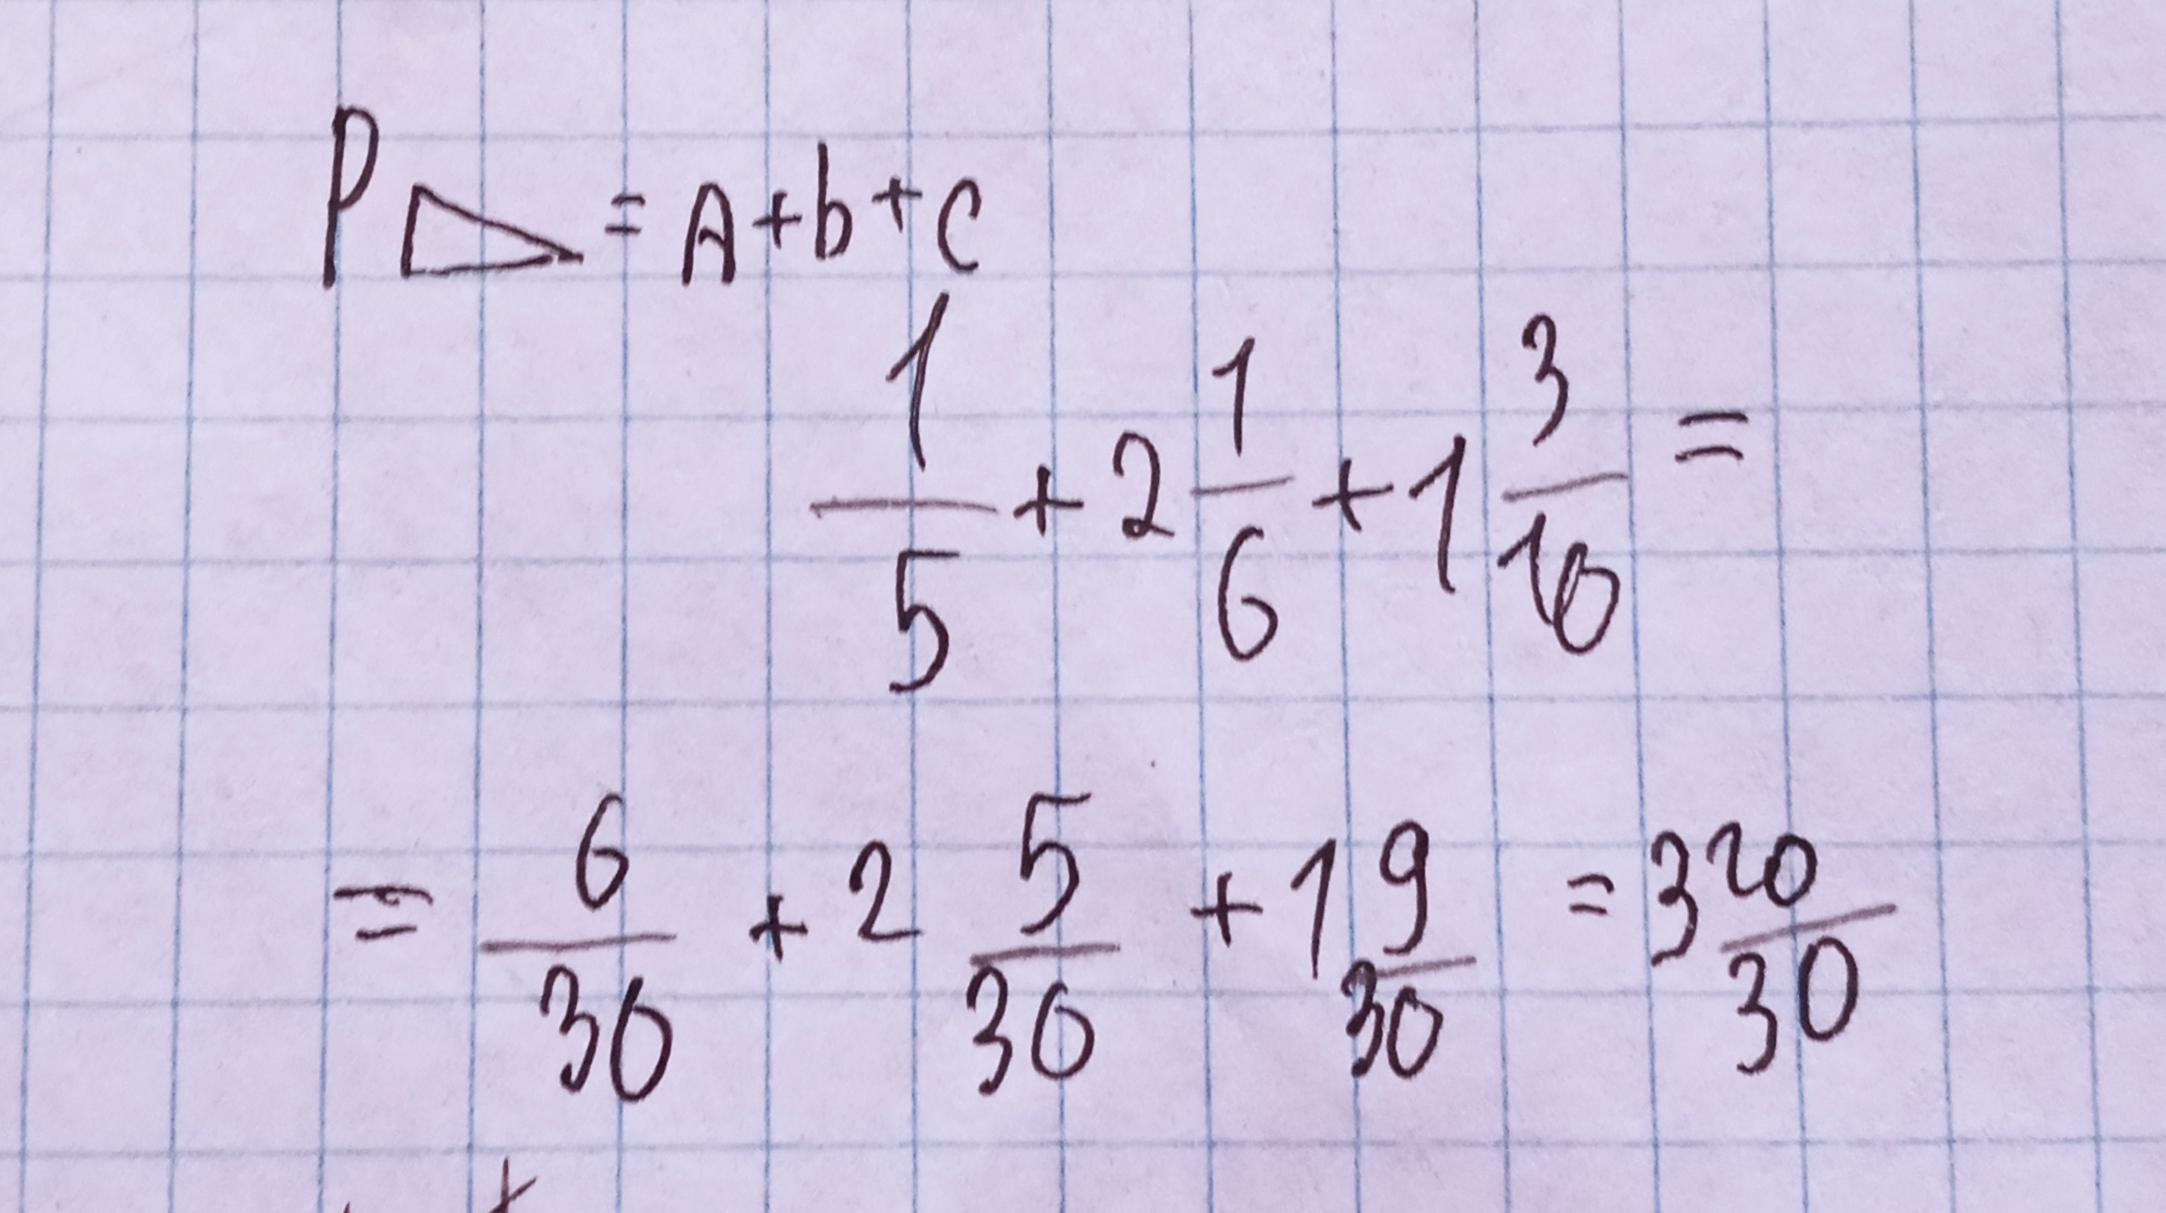 P△ = A+b+c
1/5 + 2 1/6 + 1 3/10 =
= 6/30 + 2 5/30 + 1 9/30 = 3 20/30